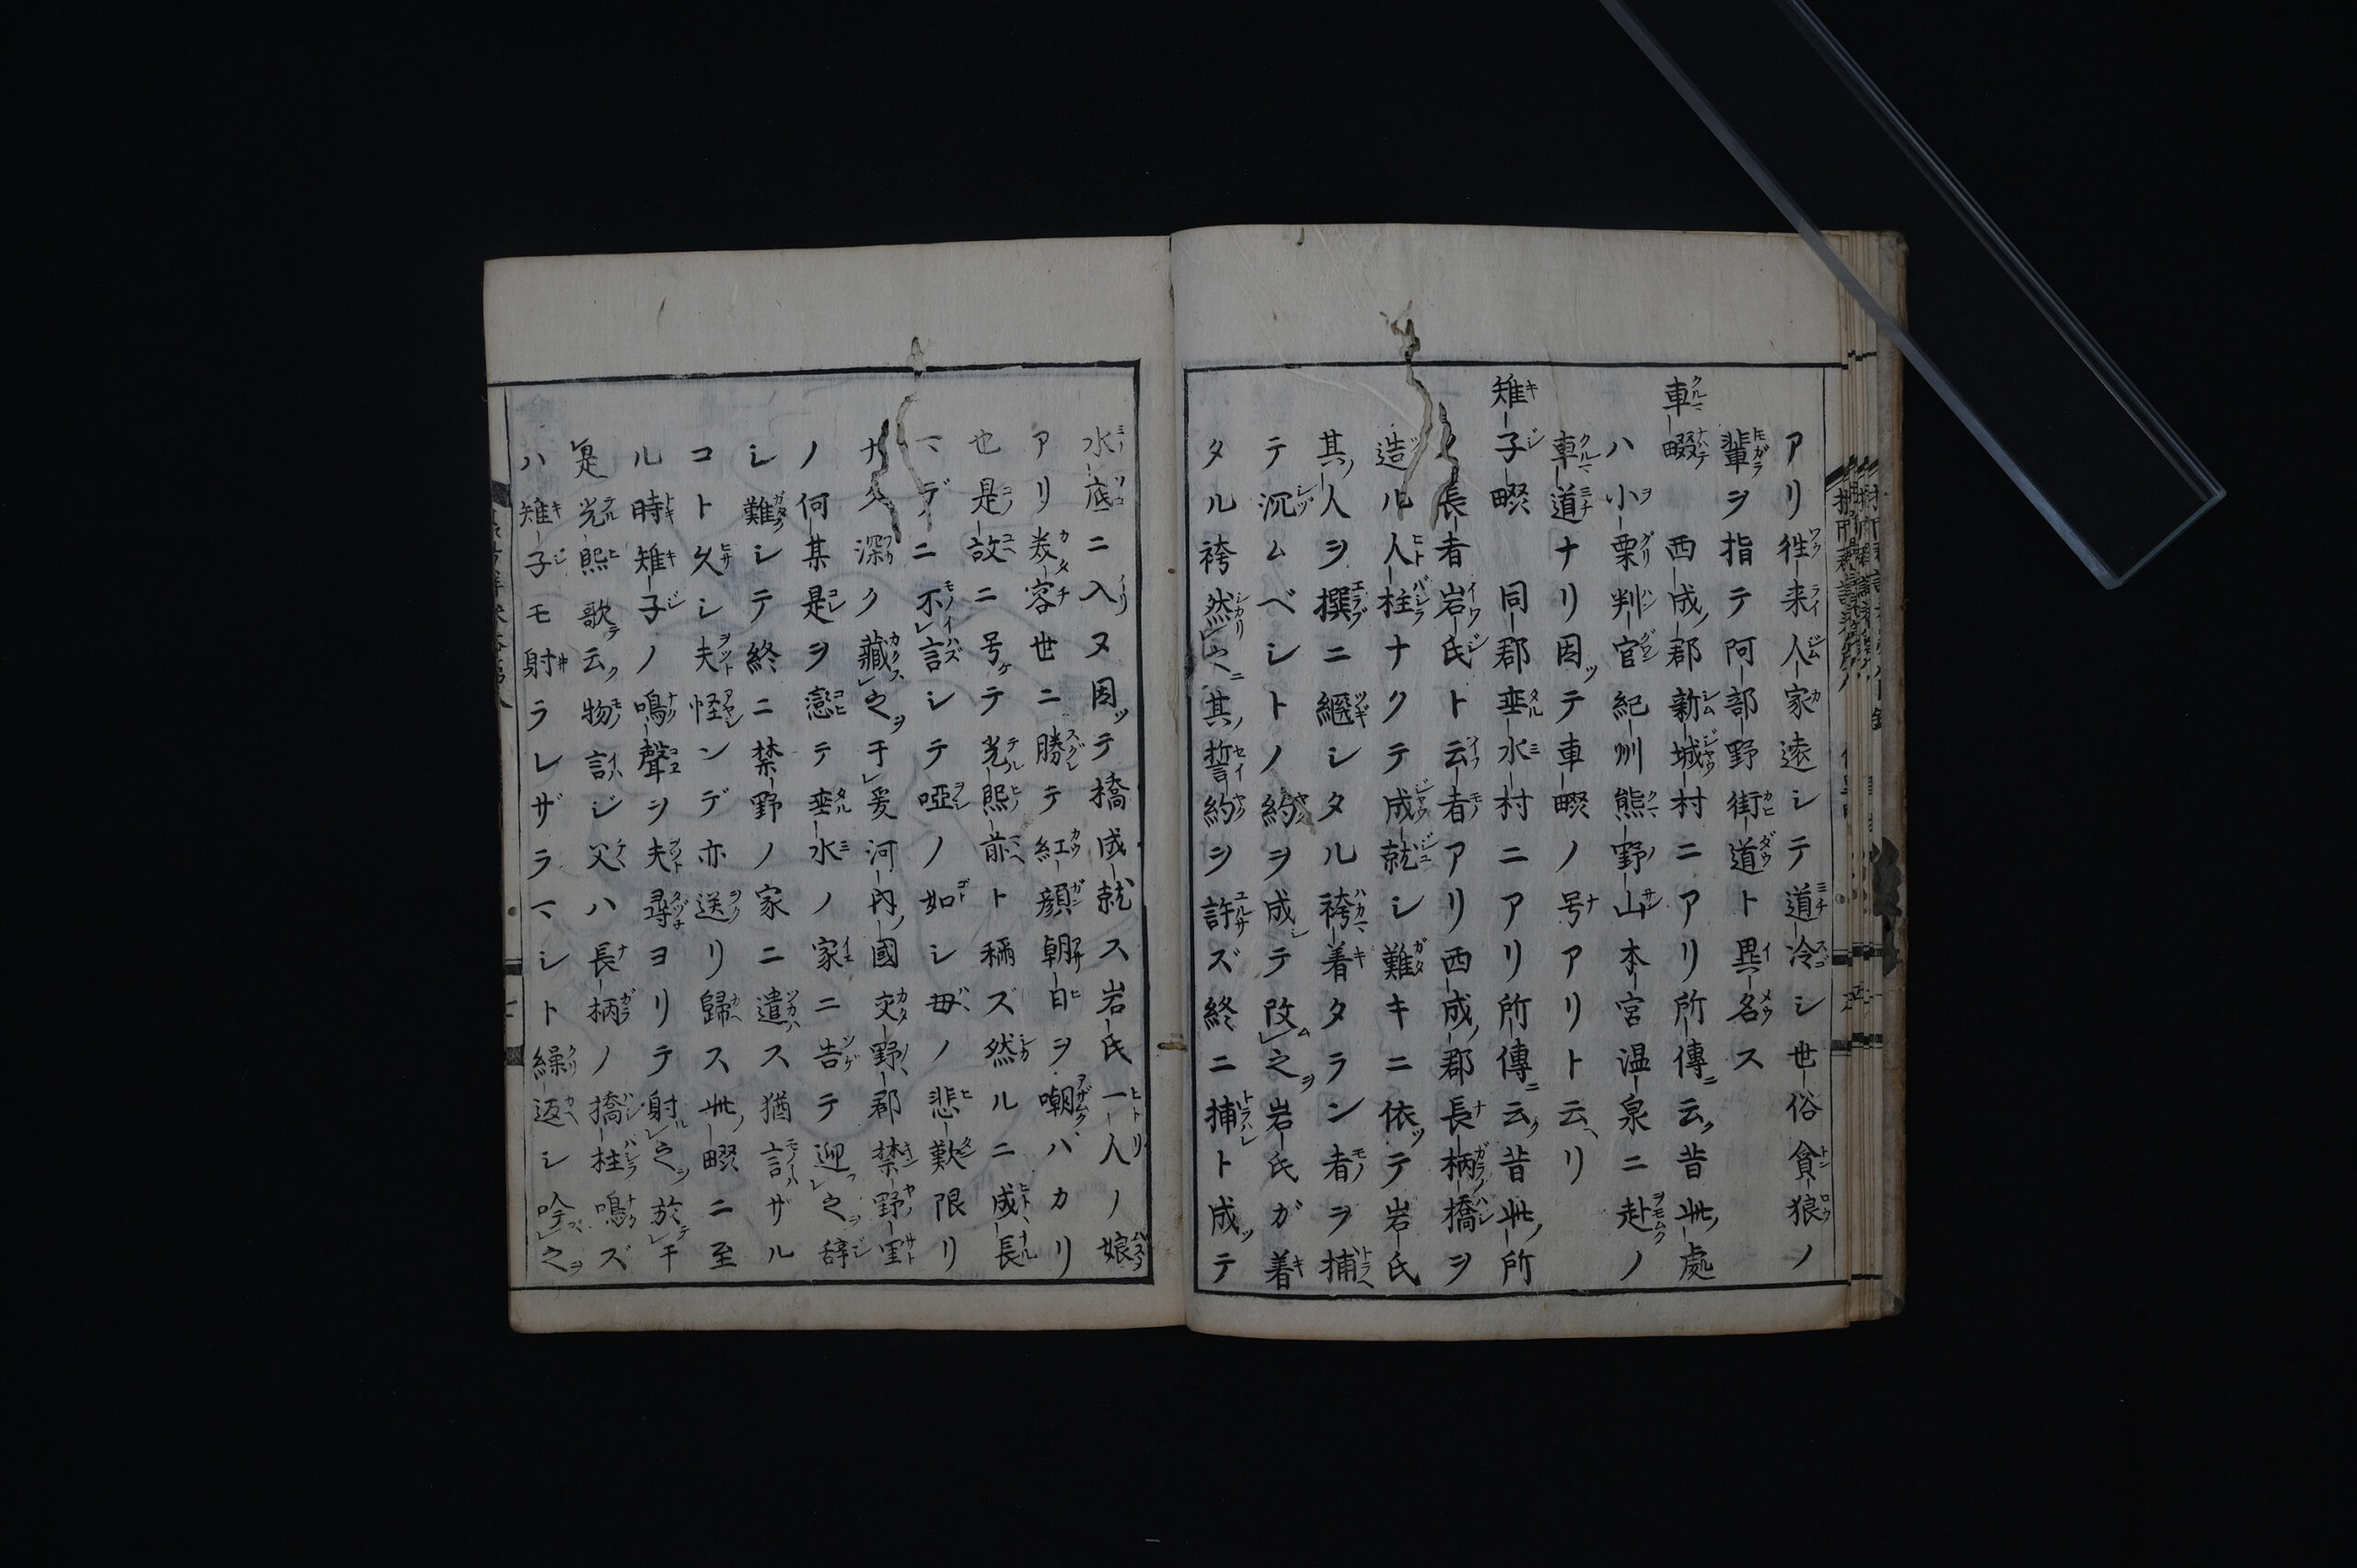 アリ徃来人家遠シテ道冷シ世俗貪狼ノ
輩ヲ指テ阿部野街道ト異名ス
車畷 西成郡新城村ニアリ所傳云昔此處
ハ小栗判官紀州熊野山本宮温泉ニ赴ノ
車道ナリ因テ車畷ノ号アリト云リ
雉子畷 同郡垂水村ニアリ所傳云昔此所
長者岩氏ト云者アリ西成郡長柄橋ヲ
造ル人柱ナクテ成就シ難キニ依テ岩氏
其人ヲ撰ニ継シタル袴着タラン者ヲ捕
テ沉ムベシトノ約ヲ成テ改之岩氏ガ着
タル袴然之其誓約ヲ許ズ終ニ捕ト成テ
水底ニ入ヌ因テ橋成就ス岩氏一人ノ娘
アリ㒵容世ニ勝テ紅顔朝日ヲ嘲バカリ
也是故ニ号テ光照前ト稱ズ然ルニ成長
マデニ不言シテ啞ノ如シ母ノ悲歎限リ
ナク深ク藏之于爰河内國交野郡禁野里
ノ何某是ヲ戀テ垂水ノ家ニ告テ迎之辞
シ難シテ終ニ禁野ノ家ニ遣ス猶言ザル
コト久シ夫怪ンデ亦送リ歸ス此畷ニ至
ル時雉子ノ鳴聲ヲ夫尋ヨリテ射之於于
是光照歌云物言ジ父ハ長柄ノ橋柱鳴ズ
ハ雉子モ射ラレザラマシト繰返シ吟之